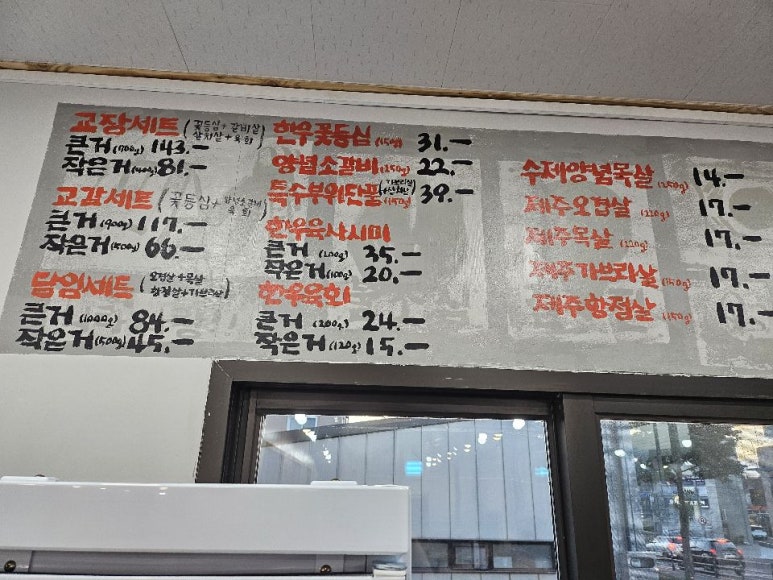 교장세트 (꽃등심+갈비살
살치살+육회)
큰거 (700g) 143.-
작은거 (400g) 81.-
교감세트 (꽃등심+양념소갈비
육회)
큰거 (900g) 117.-
작은거 (500g) 66.-
담임세트 (오겹살+목살
항정살+가브리살)
큰거 (1000g) 84.-
작은거 (500g) 45.-
한우꽃등심 (150g) 31.-
양념소갈비 (250g) 22.-
특수부위단품 (150g) 39.-
한우육사시미
큰거 (200g) 35.-
작은거 (100g) 20.-
한우육회
큰거 (200g) 24.-
작은거 (120g) 15.-
수제양념목살 (250g) 14.-
제주오겹살 (220g) 17.-
제주목살 (220g) 17.-
제주가브리살 17.-
제주항정살 (150g) 17.-